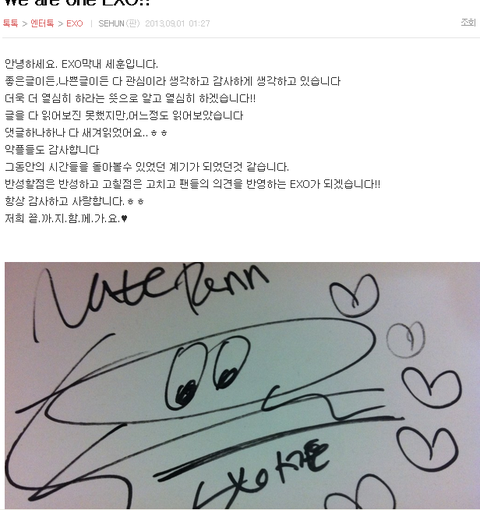 We are one EXO!!
톡톡 > 엔터톡 > EXO | SEHUN(판) 2013.09.01 01:27 조회
안녕하세요. EXO막내 세훈입니다.
좋은글이든,나쁜글이든 다 관심이라 생각하고 감사하게 생각하고 있습니다
더욱 더 열심히 하라는 뜻으로 알고 열심히 하겠습니다!!
글을 다 읽어보진 못했지만,어느정도 읽어보았습니다
댓글하나하나 다 새겨읽었어요..ㅎㅎ
악플들도 감사합니다
그동안의 시간들을 돌아볼수 있었던 계기가 되었던것 같습니다.
반성할점은 반성하고 고칠점은 고치고 팬들의 의견을 반영하는 EXO가 되겠습니다!!
항상 감사하고 사랑합니다.ㅎㅎ
저희 끝.까.지.함.께.가.요.♥
Nate Pann
EXO 세훈